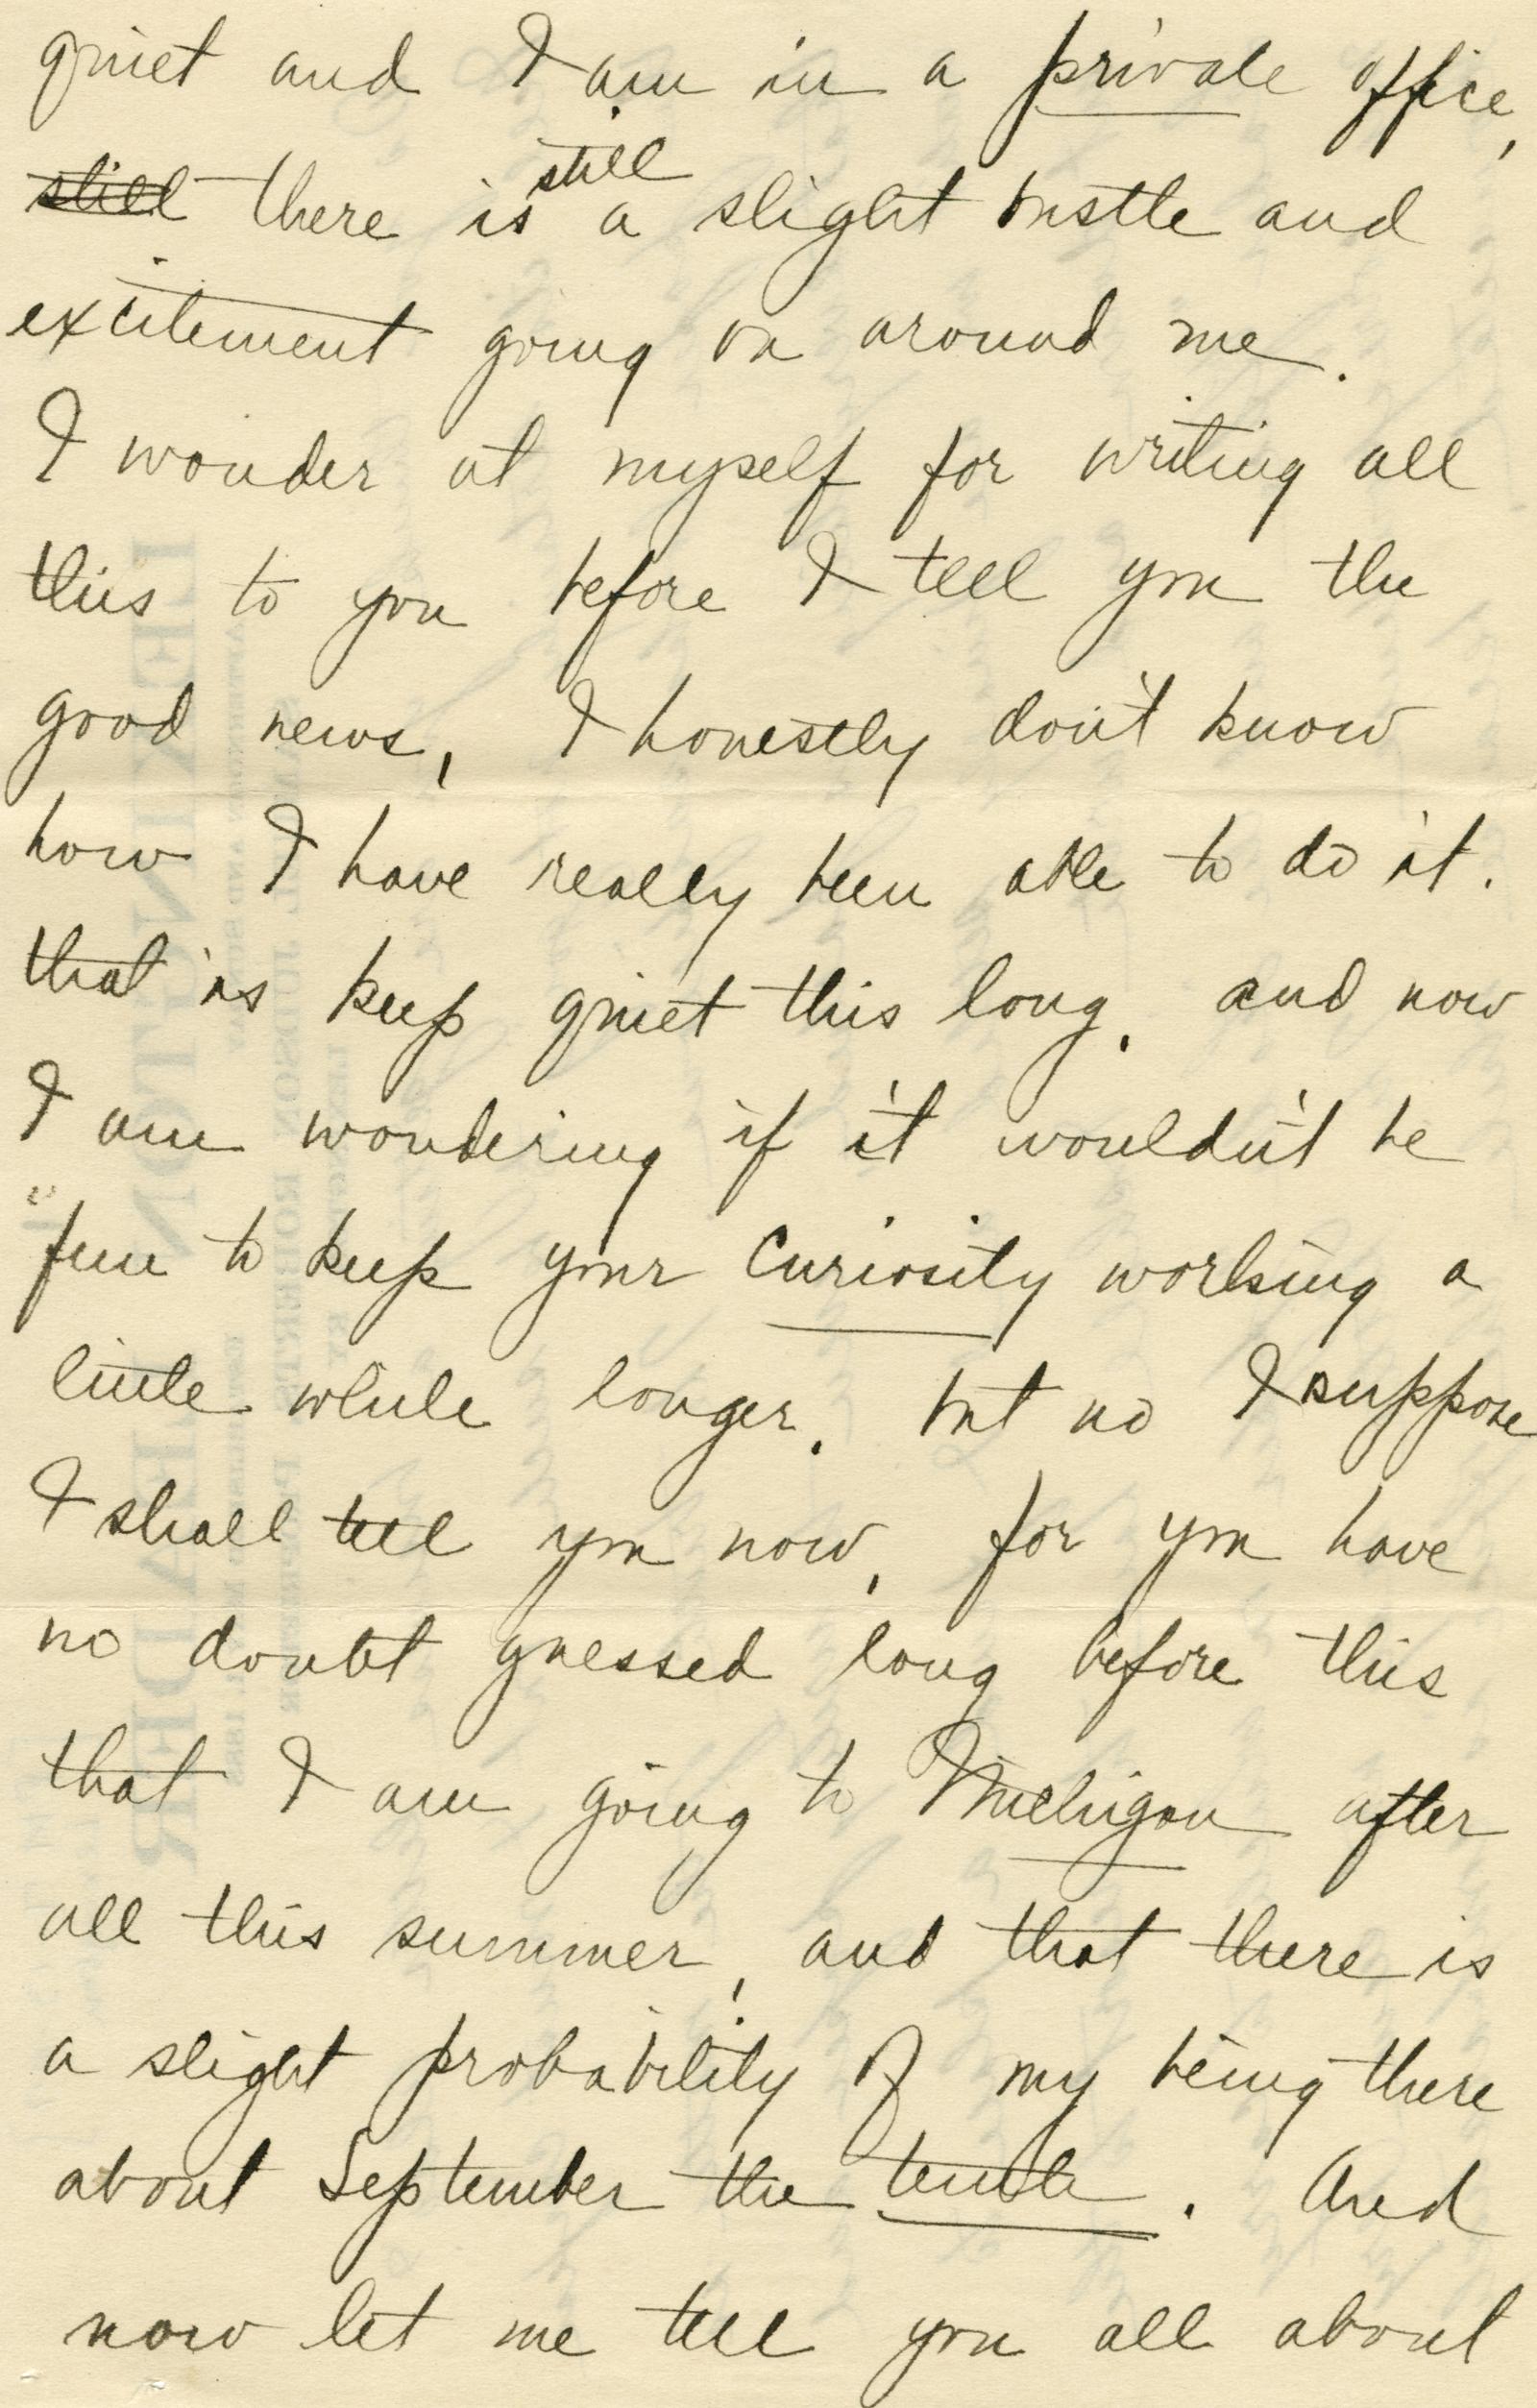 quiet and I am in a private office,
still there is still a slight bustle and
excitement going on around me.
I wonder at myself for writing all
this to you before I tell you the
good news, I honestly don't know
how I have really been able to do it.
that is keep quiet this long, and now
I am wondering if it wouldn't be
fun to keep your curiosity working a
little while longer, but no I suppose
I shall tell you now, for you have
no doubt guessed long before this
that I am going to Michigan after
all this summer, and that there is
a slight probability of my being there
about September the tenth. And
now let me tell you all about